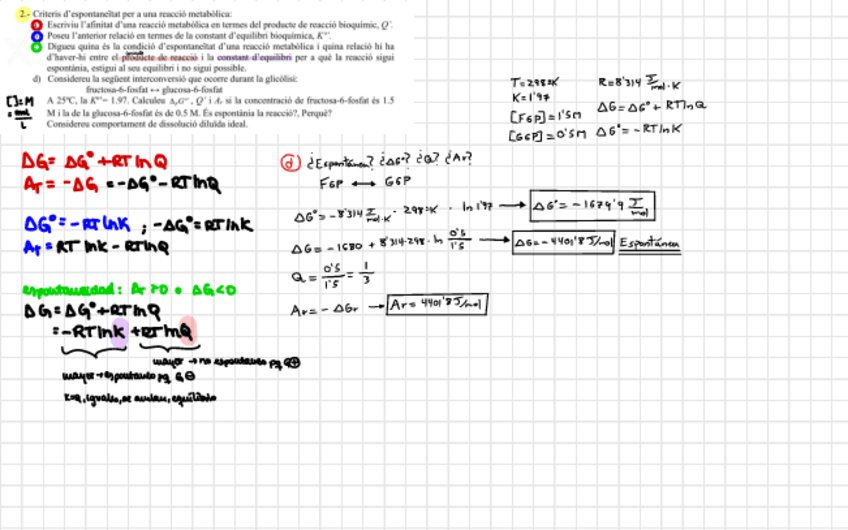 2.- Criteris d'espontaneïtat per a una reacció metabòlica:
Escriviu l'afinitat d'una reacció metabòlica en termes del producte de reacció bioquímic, Q'.
Poseu l'anterior relació en termes de la constant d'equilibri bioquímica, K°'.
Digueu quina és la condició d'espontaneïtat d'una reacció metabòlica i quina relació hi ha
d'haver-hi entre el producte de reacció i la constant d'equilibri per a què la reacció sigui
espontània, estigui al seu equilibri i no sigui possible.
d) Considereu la següent interconversió que ocorre durant la glicòlisi:
fructosa-6-fosfat ↔ glucosa-6-fosfat
A 25°C, la K°'= 1.97. Calculeu ΔrG°', Q' i Ar si la concentració de fructosa-6-fosfat és 1.5
M i la de la glucosa-6-fosfat és de 0.5 M. És espontània la reacció?, Perquè?
Considereu comportament de dissolució diluïda ideal.
[]=M
= mol
L
T=298ºK R=8'314 J/mol·K
K=1'97
[F6P]=1'5M ΔG=ΔG°+RTlnQ
[G6P]=0'5M ΔG°=-RTlnK
ΔG= ΔG°+RT lnQ
Ar= -ΔG = -ΔG°-RTlnQ
ΔG°=-RT lnK ; -ΔG°=RTlnK
Ar=RT lnK - RTlnQ
espontaneidad: Ar>0 • ΔG<0
ΔG=ΔG°+RTlnQ
=-RTlnK +RTlnQ
mayor → no espontáneo pq G⊕
mayor→espontáneo pq G⊖
K=Q, iguales, se anulan, equilibrio
d ¿Espontánea? ¿ΔG°? ¿Q? ¿Ar?
F6P ⟷ G6P
ΔG°=-8'314 J/mol·K · 298ºK · ln 1'97 → ΔG°=-1679'9 J/mol
ΔG=-1680 + 8'314·298·ln 0'5/1'5 → ΔG=-4401'8 J/mol Espontánea
Q= 0'5/1'5 = 1/3
Ar=-ΔGr → Ar= 4401'8 J/mol